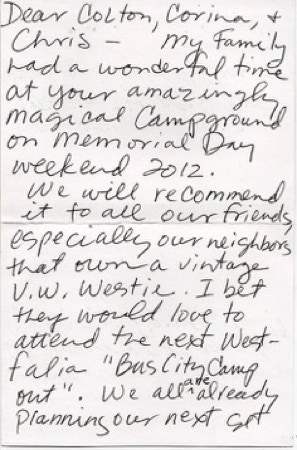 Dear Colton, Corina, +
Chris - My Family
had a wonderful time
at your amazingly
magical Campground
on Memorial Day
weekend 2012.
We will recommend
it to all our friends,
especially our neighbors
that own a vintage
V.W. Westie. I bet
they would love to
attend the next West-
falia "Bus City Camp
out". We all are already
planning our next get